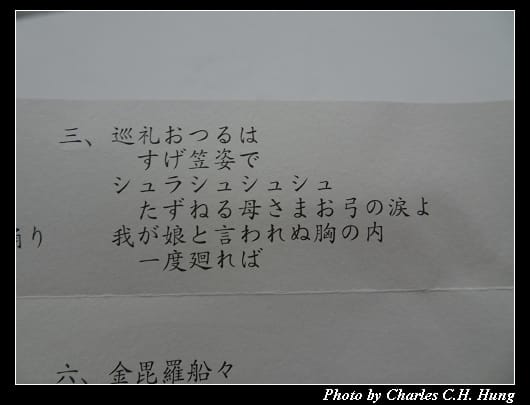 三、巡礼おつるは
すげ笠姿で
シュラシュシュシュ
たずねる母さまお弓の涙よ
我が娘と言われぬ胸の内
一度廻れば
踊り
六、金毘羅船々
Photo by Charles C.H. Hung